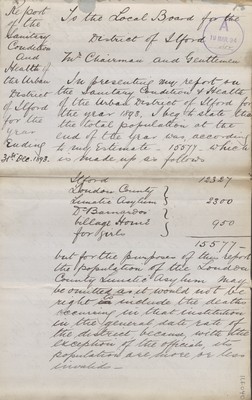 Report
of the
Sanitary
Condition
And
Health of
the Urban
District
of Ilford
for the
Year
Ending
31st Dec. 1893.
To the Local Board for the
District of Ilford
Mr Chairman and Gentlemen
In presenting my report on
the Sanitary Condition & Health
of the Urban District of Ilford for
the year 1893, I beg to state that
the total population at the
end of the year was according
to my Estimate - 15577 - which
is made up as follows
Ilford 12327
London County
Lunatic Asylum 2300
Dr Barnardos
Village Homes 950
for Girls
15577 -
but for the purposes of this report
the population of the London
County Lunatic Asylum may
be omitted as it would not be
right to include the deaths
occurring in that institution
in the general date rate of
the district because, with the
exception of the officials, its
population are more or less
invalid -